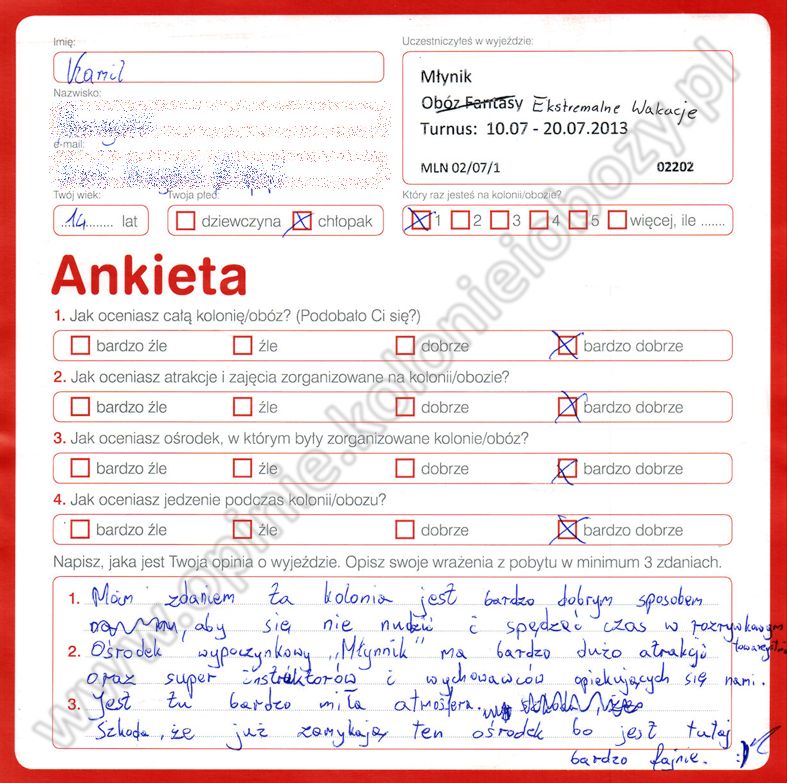 Imię:
Kamil
Nazwisko:
e-mail:
Twój wiek:
14 lat
Twoja płeć:
dziewczyna chłopak
Uczestniczyłeś w wyjeździe:
Młynik
Obóz Fantasy Ekstremalne Wakacje
Turnus: 10.07 - 20.07.2013
MLN 02/07/1 02202
Który raz jesteś na kolonii/obozie?
1 2 3 4 5 więcej, ile .......
Ankieta
1. Jak oceniasz całą kolonię/obóz? (Podobało Ci się?)
bardzo źle źle dobrze bardzo dobrze
2. Jak oceniasz atrakcje i zajęcia zorganizowane na kolonii/obozie?
bardzo źle źle dobrze bardzo dobrze
3. Jak oceniasz ośrodek, w którym były zorganizowane kolonie/obóz?
bardzo źle źle dobrze bardzo dobrze
4. Jak oceniasz jedzenie podczas kolonii/obozu?
bardzo źle źle dobrze bardzo dobrze
Napisz, jaka jest Twoja opinia o wyjeździe. Opisz swoje wrażenia z pobytu w minimum 3 zdaniach.
1. Moim zdaniem ta kolonia jest bardzo dobrym sposobem
aby się nie nudzić i spędzać czas w rozrywkowym
towarzystwie
2. Ośrodek wypoczynkowy „Młynnik” ma bardzo dużo atrakcji
oraz super instruktorów i wychowawców opiekujących się nami.
3. Jest tu bardzo miła atmosfera.
Szkoda, że już zamykają ten ośrodek bo jest tutaj
bardzo fajnie. :)
www.opinie.kolonieiobozy.pl